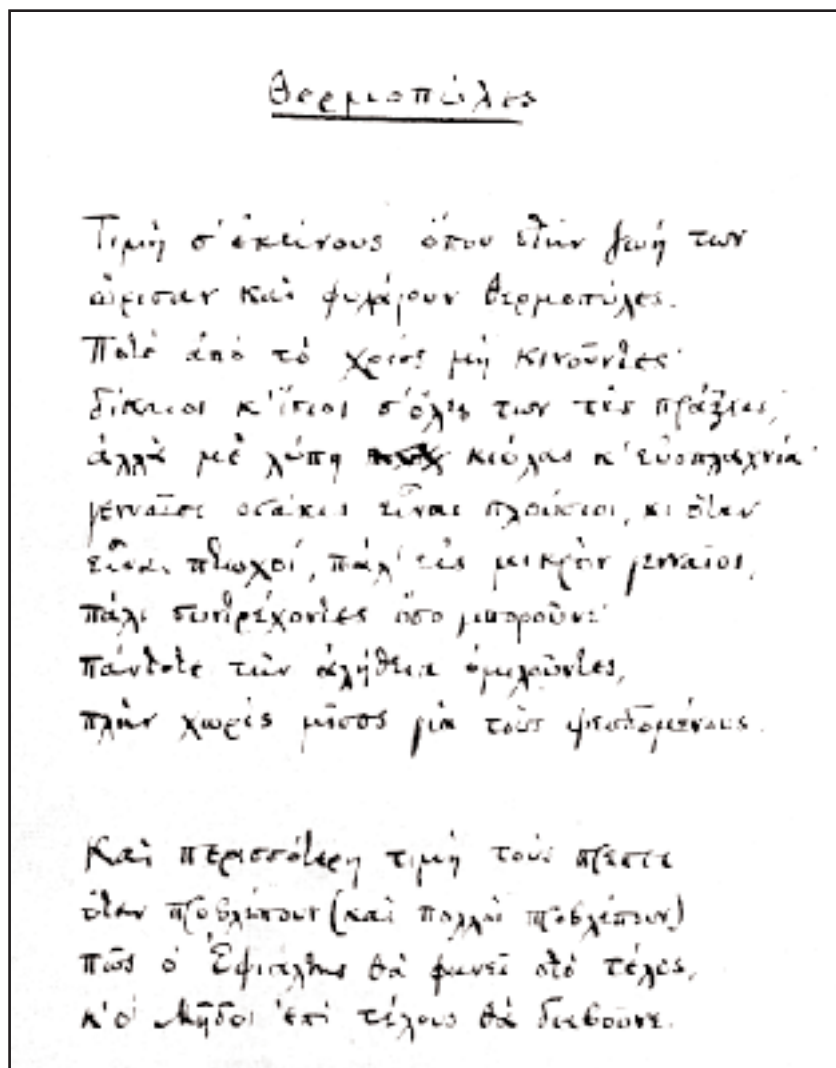 Θερμοπύλες
Τιμή σ' ἐκείνους ὅπου στὴν ζωή των
ὥρισαν καὶ φυλάγουν Θερμοπύλες.
Ποτὲ ἀπὸ τὸ χρέος μὴ κινοῦντες·
δίκαιοι κ' ἴσιοι σ' ὅλες των τὲς πράξεις,
ἀλλὰ μὲ λύπη κιόλας κ' εὐσπλαχνία·
γενναῖοι ὁσάκις εἶναι πλούσιοι, κι ὅταν
εἶναι πτωχοί, πάλ' εἰς μικρὸν γενναῖοι,
πάλι συντρέχοντες ὅσο μποροῦνε·
πάντοτε τὴν ἀλήθεια ὁμιλοῦντες,
πλὴν χωρὶς μῖσος γιὰ τοὺς ψευδομένους.
Καὶ περισσότερη τιμὴ τοὺς πρέπει
ὅταν προβλέπουν (καὶ πολλοὶ προβλέπουν)
πὼς ὁ Ἐφιάλτης θὰ φανεῖ στὸ τέλος,
κ' οἱ Μῆδοι ἐπὶ τέλους θὰ διαβοῦνε.